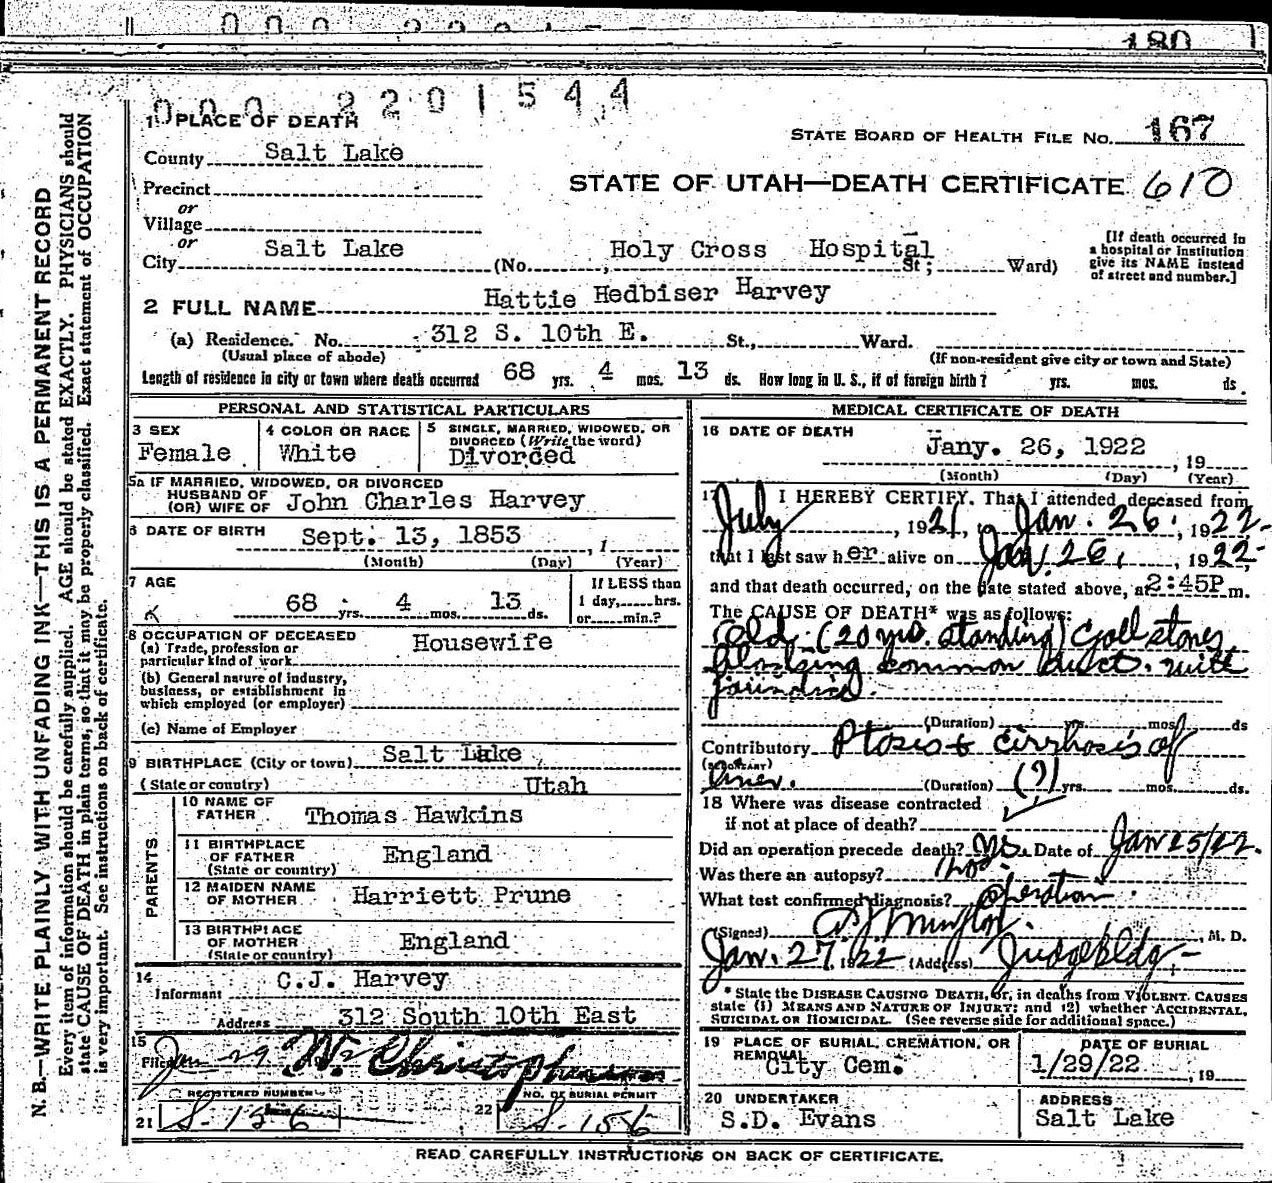 180
000 2201544
1 PLACE OF DEATH
STATE BOARD OF HEALTH FILE No. 167
County Salt Lake
STATE OF UTAH—DEATH CERTIFICATE 610
Precinct
or
Village
or
City Salt Lake (No. Holy Cross Hospital St; Ward)
[If death occurred in
a hospital or institution
give its NAME instead
of street and number.]
2 FULL NAME Hattie Hedbiser Harvey
(a) Residence. No. 312 S. 10th E. St., Ward.
(Usual place of abode) (If non-resident give city or town and State)
Length of residence in city or town where death occurred 68 yrs. 4 mos. 13 ds. How long in U. S., if of foreign birth? yrs. mos. ds.
PERSONAL AND STATISTICAL PARTICULARS
3 SEX
Female
4 COLOR OR RACE
White
5 SINGLE, MARRIED, WIDOWED, OR
DIVORCED (Write the word)
Divorced
5a IF MARRIED, WIDOWED, OR DIVORCED
HUSBAND OF
(OR) WIFE OF John Charles Harvey
6 DATE OF BIRTH Sept. 13, 1853, 1
(Month) (Day) (Year)
7 AGE
68 yrs. 4 mos. 13 ds.
If LESS than
1 day, hrs.
or min.?
8 OCCUPATION OF DECEASED
(a) Trade, profession or
particular kind of work Housewife
(b) General nature of industry,
business, or establishment in
which employed (or employer)
(c) Name of Employer
9 BIRTHPLACE (City or town) Salt Lake
(State or country) Utah
PARENTS
10 NAME OF
FATHER Thomas Hawkins
11 BIRTHPLACE
OF FATHER England
(State or country)
12 MAIDEN NAME
OF MOTHER Harriett Prune
13 BIRTHPLACE
OF MOTHER England
(State or country)
14
Informant C.J. Harvey
Address 312 South 10th East
15
Filed Jan 29 W. Christophersen
REGISTERED NUMBER
21 S-156
NO. OF BURIAL PERMIT
22 S-156
MEDICAL CERTIFICATE OF DEATH
16 DATE OF DEATH
Jany. 26, 1922, 19
(Month) (Day) (Year)
17 I HEREBY CERTIFY, That I attended deceased from
July, 1921, to Jan. 26, 1922
that I last saw her alive on Jan. 26, 1922
and that death occurred, on the date stated above, at 2:45P m.
The CAUSE OF DEATH* was as follows:
Old (20 yrs. standing) Gall stones
blocking common duct. with
jaundice.
(Duration) yrs. mos. ds
Contributory Ptosis & cirrhosis of
(SECONDARY)
liver. (Duration) (?) yrs. mos. ds.
18 Where was disease contracted
if not at place of death?
Did an operation precede death? yes. Date of Jan 25/22.
Was there an autopsy? no.
What test confirmed diagnosis? Operation.
(Signed) M. D.
Jan. 27, 1922 (Address) Judge bldg
* State the DISEASE CAUSING DEATH, or, in deaths from VIOLENT CAUSES
state (1) MEANS AND NATURE OF INJURY; and (2) whether ACCIDENTAL,
SUICIDAL OR HOMICIDAL. (See reverse side for additional space.)
19 PLACE OF BURIAL, CREMATION, OR
REMOVAL
City Cem.
DATE OF BURIAL
1/29/22, 19
20 UNDERTAKER
S.D. Evans
ADDRESS
Salt Lake
READ CAREFULLY INSTRUCTIONS ON BACK OF CERTIFICATE.
N. B.—WRITE PLAINLY WITH UNFADING INK—THIS IS A PERMANENT RECORD
Every item of information should be carefully supplied. AGE should be stated EXACTLY. PHYSICIANS should
state CAUSE OF DEATH in plain terms, so that it may be properly classified. Exact statement of OCCUPATION
is very important. See instructions on back of certificate.